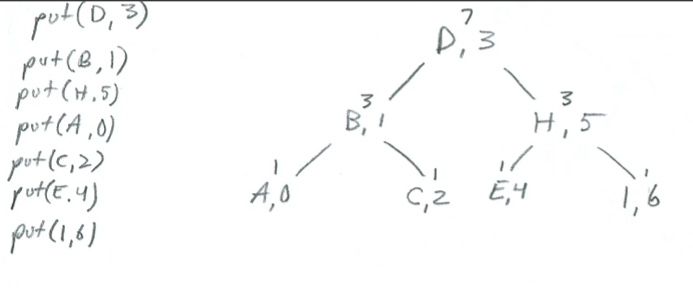 put(D, 3)
put(B, 1)
put(H, 5)
put(A, 0)
put(C, 2)
put(E, 4)
put(I, 6)
7
D, 3
3
B, 1
3
H, 5
1
A, 0
1
C, 2
1
E, 4
1
I, 6